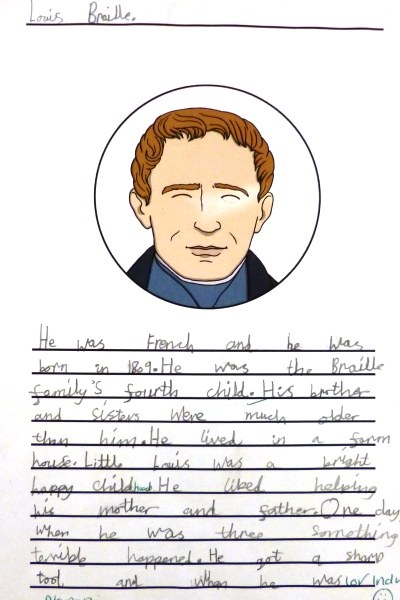 Louis Braille.
He was French and he was
born in 1809. He was the Braille
family's fourth child. His brother
and sisters were much older
than him. He lived in a farm
house. Little Louis was a bright
happy child. He liked helping
his mother and father. One day,
when he was three something
terrible happened. He got a sharp
tool, and when he was